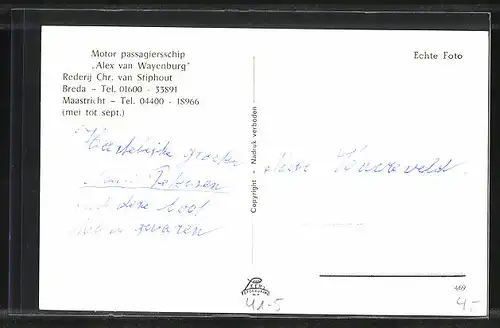 Motor passagiersschip
„Alex van Wayenburg"
Rederij Chr. van Stiphout
Breda – Tel. 01600 - 33891
Maastricht – Tel. 04400 - 18966
(mei tot sept.)
Echte Foto
Copyright Nadruk verboden
Hartelijke groeten
met deze boot
gevaren
469
41-5
4,-